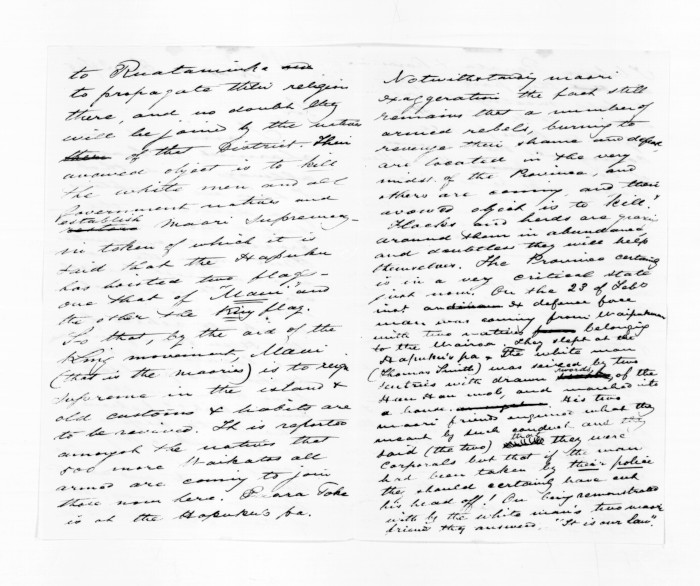 to Ruataniwha
to propagate their religion
there, and no doubt they
will be joined by the natives
of that District. Their
avowed object is to kill
the white men and all
Government natives and
establish maori Supremacy
in token of which it is
said that the Hapuku
has hoisted two flags -
one that of "Maui" and
the other the King flag.
So that, by the aid of the
King movement, Maui
(that is the maories) is to reign
supreme in the island &
old customs & habits are
to be revived. It is reported
amongst the natives that
500 more Waikatos all
armed are coming to join
those now here. Toke
is at the Hapuku's pa.
Notwithstanding maori
exaggeration the fact still
remains that a number of
armed rebels, burning to
revenge their shame and defeat
are located in the very
midst of the Province, and
others are coming, and their
avowed object is to kill!
Flocks and herds are grazing
around them in abundance,
and doubtless they will help
themselves. The Province certainly
is in a very critical state
just now. On the 23 of Feb
inst an ex defence force
man was coming from Waipukurau
with two natives belonging
to the Wairoa. They slept at the
Hapuku's pa & The white man
(Thomas Smith) was seized by two
sentries with drawn swords, of the
Hau Hau mob, and marched into
a house. His two
maori friends enquired what they
meant by such conduct and they
said (the two) that they were
corporals but that if the man
had been taken by their police
they should certainly have cut
his head off! On being remonstrated
with by the white man's two maori
friends they answered. "It is our law".